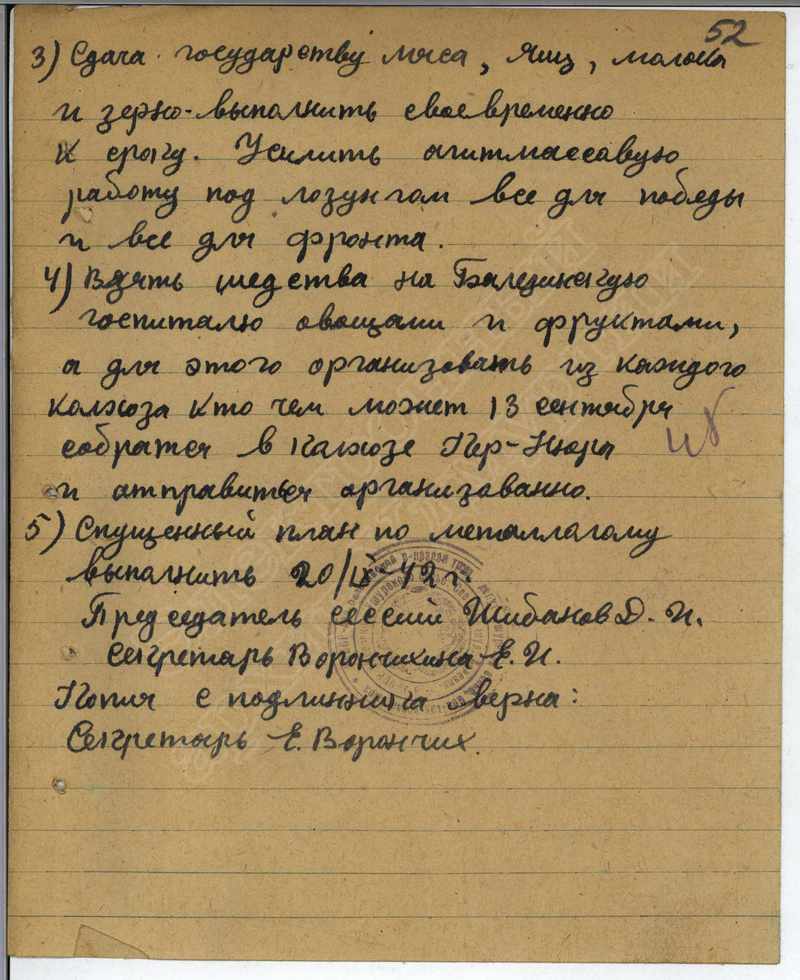 52
3) Сдача государству мяса, яиц, молока
и зерно-выполнить своевременно
к сроку. Усилить агитмассовую
работу под лозунгом все для победы
и все для фронта.
4) Взять шедства на Балезинскую
госпиталю овощами и фруктами,
а для этого организовать из каждого
колхоза кто чем может 13 сентября
собратся в колхозе Пер-Нюра
и отправиться организованно.
5) Спущенный план по металлагому
выполнить 20/IX-42 г.
Председатель сессии Шибанов Д. И.
Секретарь Ворончихина Е. И.
Копия с подлинника верна:
Секретарь Е. Ворончих.